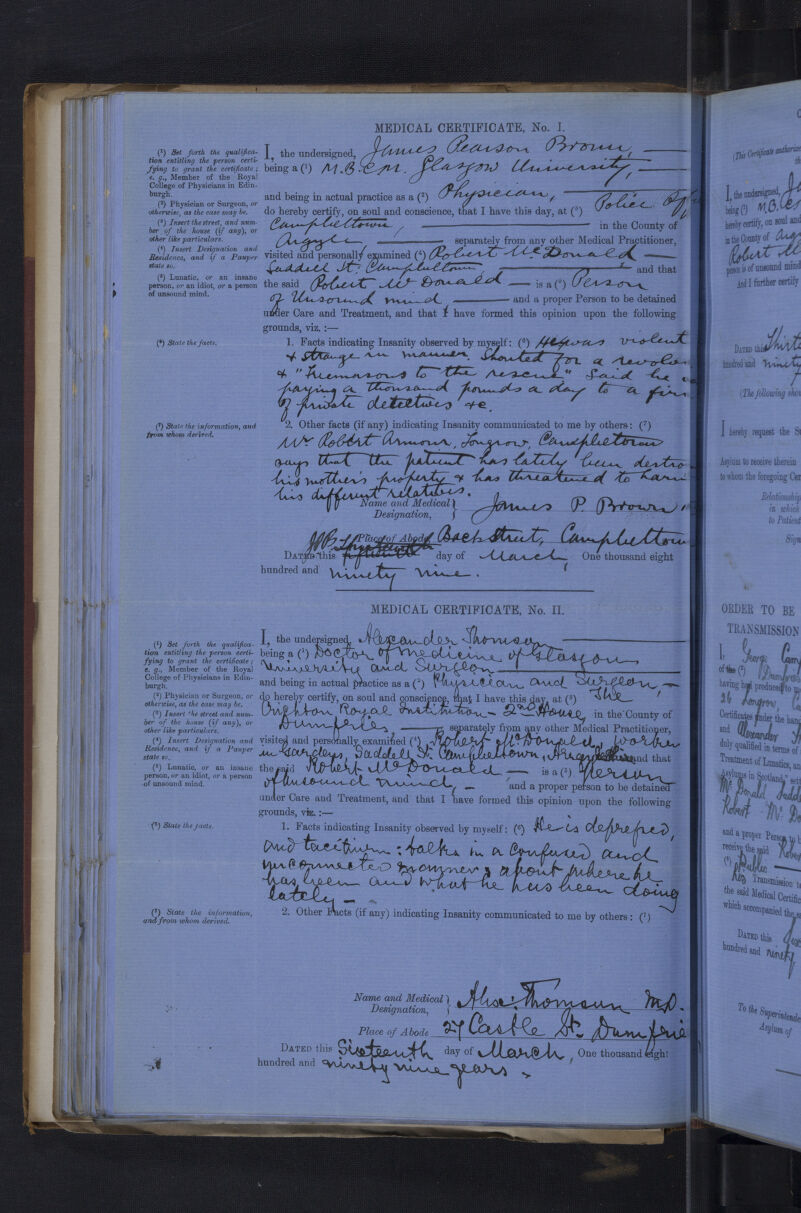 MEDICAL CERTIFICATE, No. I.
(¹) Set forth the qualifica-
tion entitling the person certi-
fying to grant the certificate;
e. g., Member of the Royal
College of Physicians in Edin-
burgh.
(²) Physician or Surgeon, or
otherwise, as the case may be.
(³) Insert the street, and num-
ber of the house (if any), or
other like particulars.
(⁴) Insert Designation and
Residence, and if a Pauper
state so.
(⁵) Lunatic, or an insane
person, or an idiot, or a person
of unsound mind.
I, the undersigned, James Pearson Brown,
being a (¹) M.B.C.M. Glasgow University,
and being in actual practice as a (²) Physician,
do hereby certify, on soul and conscience, that I have this day, at (³) Police
Campbeltown, in the County of
Argyle separately from any other Medical Practitioner,
visited and personally examined (⁴) Robert McDonald
Saddell St. Campbeltown and that
the said Robert McDonald is a (⁵) Person
of Unsound mind, and a proper Person to be detained
under Care and Treatment, and that I have formed this opinion upon the following
grounds, viz. :—
(⁶) State the facts.
1. Facts indicating Insanity observed by myself: (⁶) He was violent
& strange in manner. Shouted for a
& "Freemasons to the rescue" Said he
paying a thousand pounds a day to a
of private detectives &c.
(⁷) State the information, and
from whom derived.
2. Other facts (if any) indicating Insanity communicated to me by others: (⁷)
Mr Robert Armour, Longrow, Campbeltown
says that the patient has lately been
his mother's property & has threatened to
his different relatives.
Name and Medical
Designation,
James P. Brown
Place of Abode Back Street, Campbeltown
DATED this day of March, One thousand eight
hundred and ninety nine.
MEDICAL CERTIFICATE, No. II.
(¹) Set forth the qualifica-
tion entitling the person certi-
fying to grant the certificate;
e. g., Member of the Royal
College of Physicians in Edin-
burgh.
(²) Physician or Surgeon, or
otherwise, as the case may be.
(³) Insert the street and num-
ber of the house (if any), or
other like particulars.
(⁴) Insert Designation and
Residence, and if a Pauper
state so.
(⁵) Lunatic, or an insane
person, or an idiot, or a person
of unsound mind.
I, the undersigned, Alexander Thomson
being a (¹) Doctor of Medicine of Glasgow
University and Surgeon
and being in actual practice as a (²) Physician and Surgeon,
do hereby certify, on soul and conscience, that I have this day, at (³) The
Crighton Royal Institution - 2nd House, in the County of
Dumfries, separately from any other Medical Practitioner,
visited and personally examined (⁴) Robert McDonald, worker
in Gardens, Saddell St. Campbeltown, Argyllshire and that
the said Robert McDonald is a (⁵) person
of unsound mind, and a proper person to be detained
under Care and Treatment, and that I have formed this opinion upon the following
grounds, viz. :—
(⁶) State the facts.
1. Facts indicating Insanity observed by myself: (⁶) He is depressed,
and taciturn: talks in a confused and
unconnected manner about where he
has been and what he has been doing
lately -
(⁷) State the information,
and from whom derived.
2. Other Facts (if any) indicating Insanity communicated to me by others: (⁷)
Name and Medical
Designation,
Alex: Thomson M.D.
Place of Abode 27 Castle St. Dumfrie
DATED this Sixteenth day of March, One thousand eight
hundred and ninety nine years.
I, the undersigned,
being (¹) M.B.
hereby certify, on soul and
in the County of
Robert
person is of unsound mind
And I further certify
DATED this
hundred and ninety
(The following
I hereby request the
Asylum to receive therein
to whom the foregoing
Relationship
in which
to Patient
ORDER TO BE
TRANSMISSION
I, George
having
26 Longrow,
Certificates under the
and Alexander
duly qualified in terms of
Treatment of Lunatics, an
Asylums in Scotland,"
McDonald
Robert
and a proper Person to
receive the said
Transmission
the said Medical
which accompanied the
DATED this
hundred and ninety
To the Superintende
Asylum of